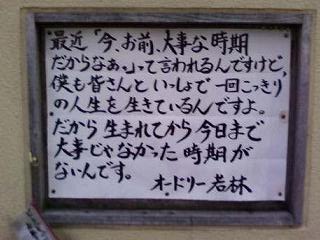 最近「今、お前、大事な時期
だからなぁ。」って言われるんですけど、
僕も皆さんといっしょで一回こっきり
の人生を生きているんですよ。
だから 生まれてから 今日まで
大事じゃなかった 時期が
ないんです。 オードリー若林